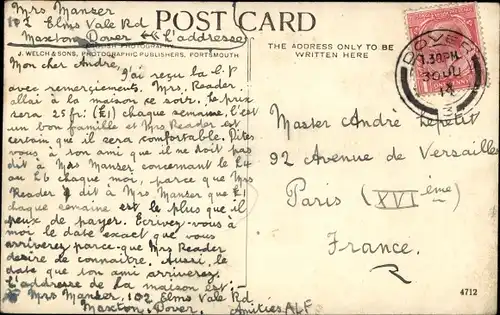 Mrs Manser
102 Elms Vale Rd
Maxton Dover ← L'addresse
POST CARD
J. WELCH & SONS, PHOTOGRAPHIC PUBLISHERS, PORTSMOUTH.
THE ADDRESS ONLY TO BE
WRITTEN HERE
DOVER
1.30 PM
30 JU
Mon cher Andre,
J'ai reçu la C.P
avec remerciements. Mrs. Reader
allai à la maison ce soir. Le prix
sera 25 fr: (£1) chaque semaine. C'est
un bon famille et Mrs Reader est
certain que il sera comfortable. Dites
vous à ton ami que il ne doit pas
dit à Mrs Manser concernant le £4
ou £6 chaque mois, parce que Mrs
Reader a dit à Mrs Manser que £1
chaque semaine est le plus que il
peux de payer. Ecrivez-vous à
moi le date exact que vous
arriverez parce-que Mrs Reader
desire de connaitre. Aussi, le
date que ton ami arriverez.
L'addresse de la maison est :-
Mrs Manser, 102 Elms Vale Rd
Maxton, Dover. Amities ALF
Master André
92 Avenue de Versailles
Paris (XVI ème)
France.
4712